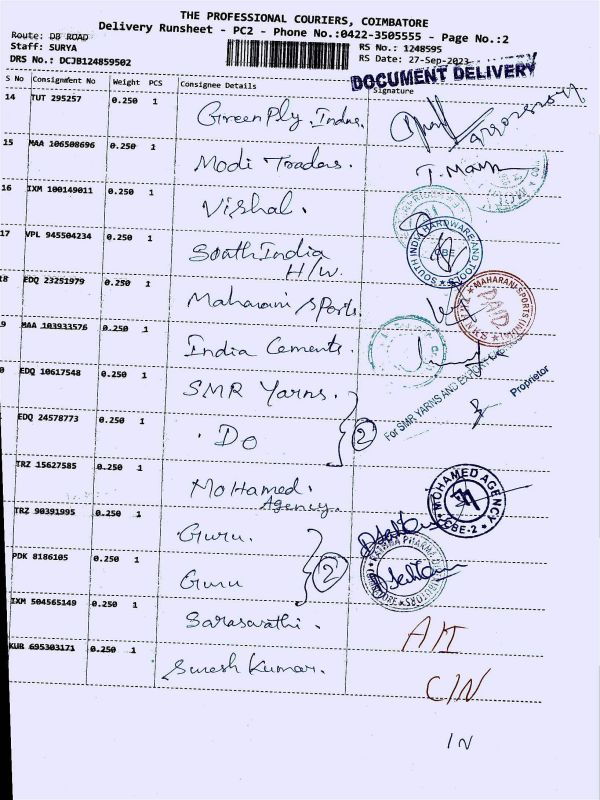 THE PROFESSIONAL COURIERS, COIMBATORE
Delivery Runsheet - PC2 - Phone No.:0422-3505555 - Page No.:2
Route: DB ROAD
Staff: SURYA
RS No.: 1248595
DRS No.: DCJB124859502
RS Date: 27-Sep-2023
DOCUMENT DELIVERY
S No Consignment No Weight PCS Consignee Details Signature
14 TUT 295257 0.250 1 GreenPly Indus.
15 MAA 106508696 0.250 1 Modi Traders.
16 IXM 100149011 0.250 1 Vishal.
17 VPL 945504234 0.250 1 South India
H/W.
SOUTH INDIA HARDWARE AND TOOLS
CBE
8 EDQ 23251979 0.250 1 Maharani Sports.
MAHARANI SPORTS
PAID
9 MAA 103933576 0.250 1 India Cements.
0 EDQ 10617548 0.250 1 SMR Yarns.
2
For SMR YARNS AND
Proprietor
EDQ 24578773 0.250 1 Do
TRZ 15627585 0.250 1 Mohamed.
Agency.
MOHAMED AGENCY
CBE-2
TRZ 90391995 0.250 1 Guru.
2
PDK 8186105 0.250 1 Guru
IXM 504565149 0.250 1 Saraswathi.
KUB 695303171 0.250 1 Suresh Kumar.
C/N
IN